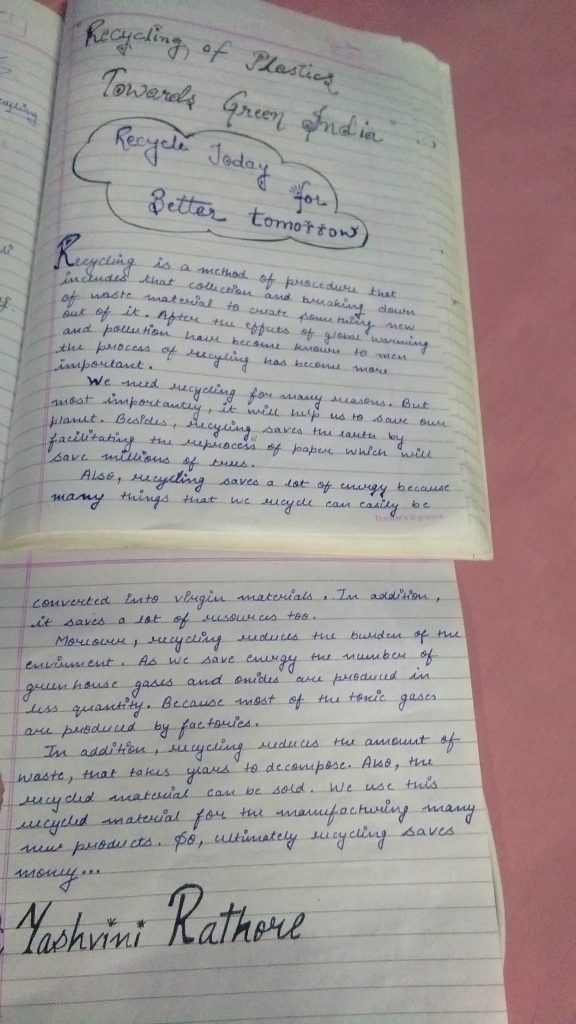 Recycling of Plastics
Towards Green India ...
Recycle Today for
Better tomorrow
Recycling is a method of procedure that
includes that collection and breaking down
of waste material to create something new
out of it. After the effects of global warming
and pollution have become known to men
the process of recycling has become more
important.
We need recycling for many reasons. But
most importantly, it will help us to save our
planet. Besides, recycling saves the earth by
facilitating the reprocess of paper which will
save millions of trees.
Also, recycling saves a lot of energy because
many things that we recycle can easily be
Teacher's Signature
converted into virgin materials. In addition,
it saves a lot of resources too.
Moreover, recycling reduces the burden of the
enviriment. As we save energy the number of
greenhouse gases and oxides are produced in
less quantity. Because most of the toxic gases
are produced by factories.
In addition, recycling reduces the amount of
waste, that takes years to decompose. Also, the
recycled material can be sold. We use this
recycled material for the manufacturing many
new products. So, ultimately recycling saves
money...
Yashvini Rathore